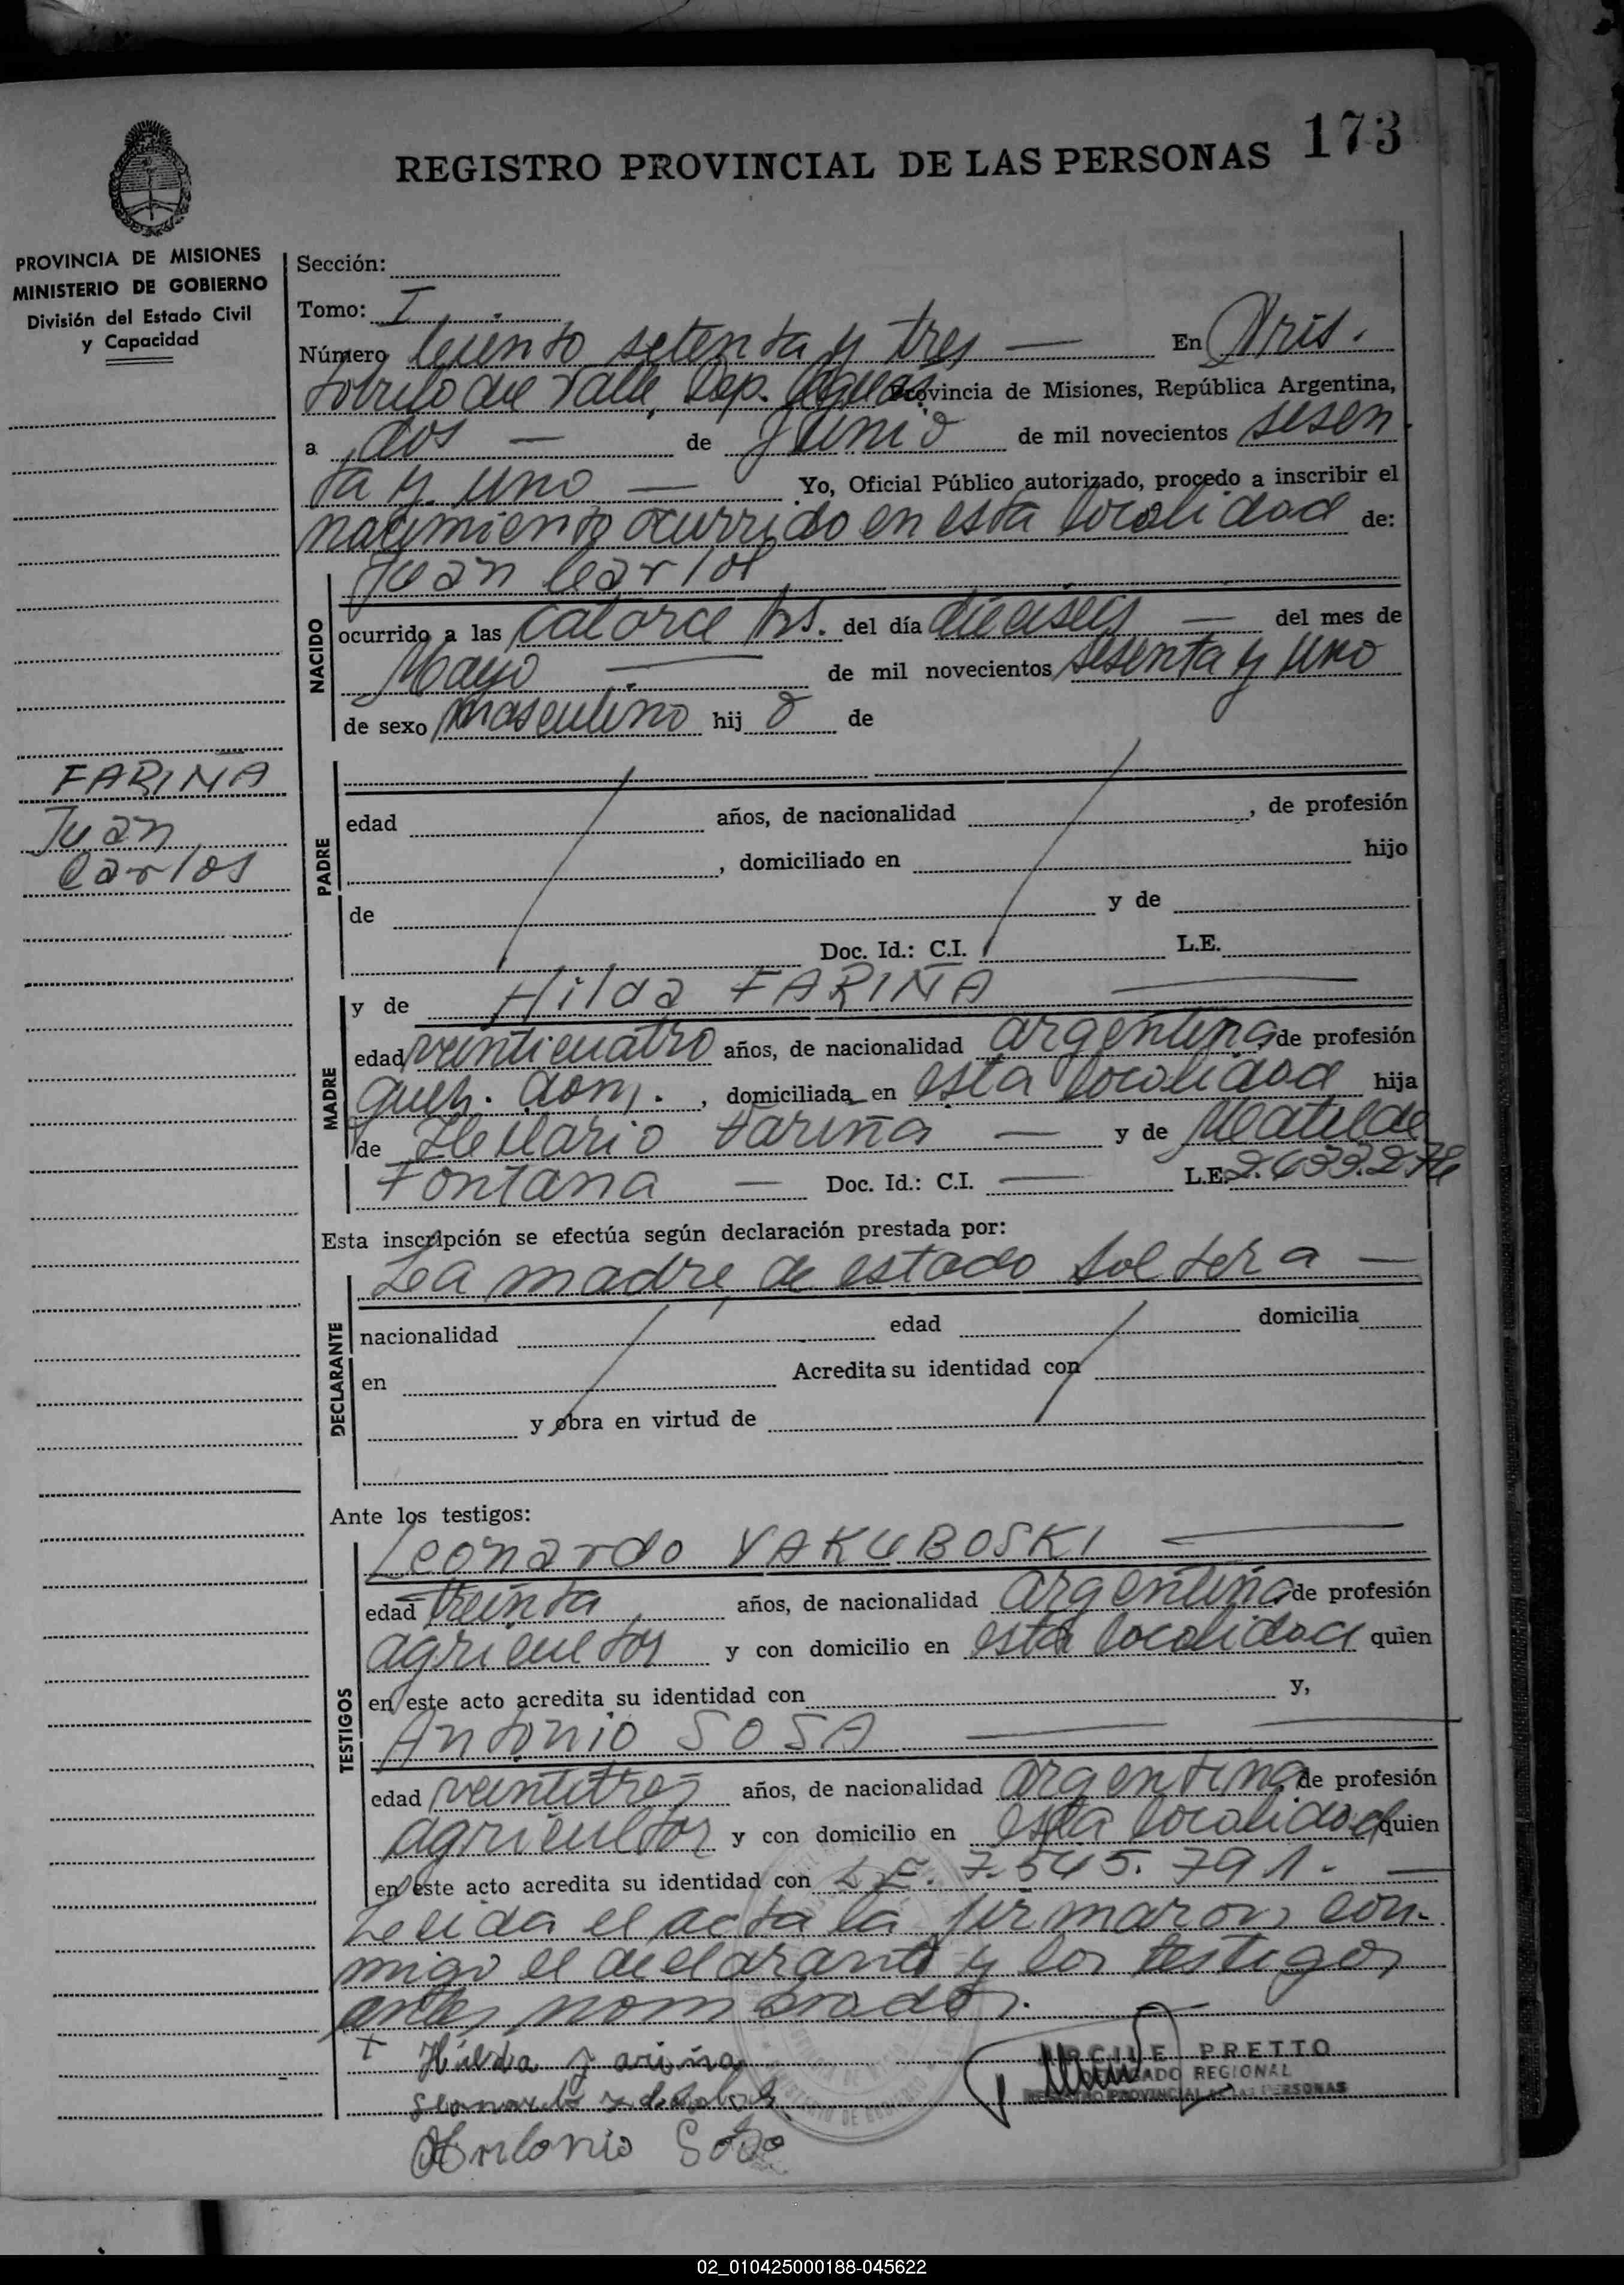 173
REGISTRO PROVINCIAL DE LAS PERSONAS
PROVINCIA DE MISIONES
MINISTERIO DE GOBIERNO
División del Estado Civil
y Capacidad
FARIÑA
Juan
Carlos
Sección:
Tomo: I
Número Ciento setenta y tres — En Aris.
tobulo del Valle, Dep. Provincia de Misiones, República Argentina,
a dos — de Junio de mil novecientos sesen
ta y uno — Yo, Oficial Público autorizado, procedo a inscribir el
nacimiento ocurrido en esta localidad de:
Juan Carlos
NACIDO
ocurrido a las catorce hs. del día dieciseis — del mes de
Mayo — de mil novecientos sesenta y uno
de sexo masculino hij o de
PADRE
edad años, de nacionalidad , de profesión
, domiciliado en hijo
de y de
Doc. Id.: C.I. L.E.
MADRE
y de Hilda FARIÑA —
edad veinticuatro años, de nacionalidad argentina de profesión
queh. dom. , domiciliada en esta localidad hija
de Hilario Fariña — y de Matilde
Fontana — Doc. Id.: C.I. — L.E. 2.633.274
Esta inscripción se efectúa según declaración prestada por:
DECLARANTE
La madre, de estado soltera —
nacionalidad edad domicilia
en Acredita su identidad con
y obra en virtud de
Ante los testigos:
TESTIGOS
Leonardo YAKUBOSKI —
edad treinta años, de nacionalidad argentina de profesión
agricultor y con domicilio en esta localidad quien
en este acto acredita su identidad con y,
Antonio SOSA — —
edad veintitres años, de nacionalidad argentina de profesión
agricultor y con domicilio en esta localidad quien
en este acto acredita su identidad con L.E. 7.545.791. —
Leida el acta la firmaron con-
migo el declarante y los testigos
antes nombrados. —
+ Hilda Fariña
PRETTO
REGIONAL
REGISTRO PROVINCIAL DE LAS PERSONAS
Antonio Sosa
02_010425000188-045622